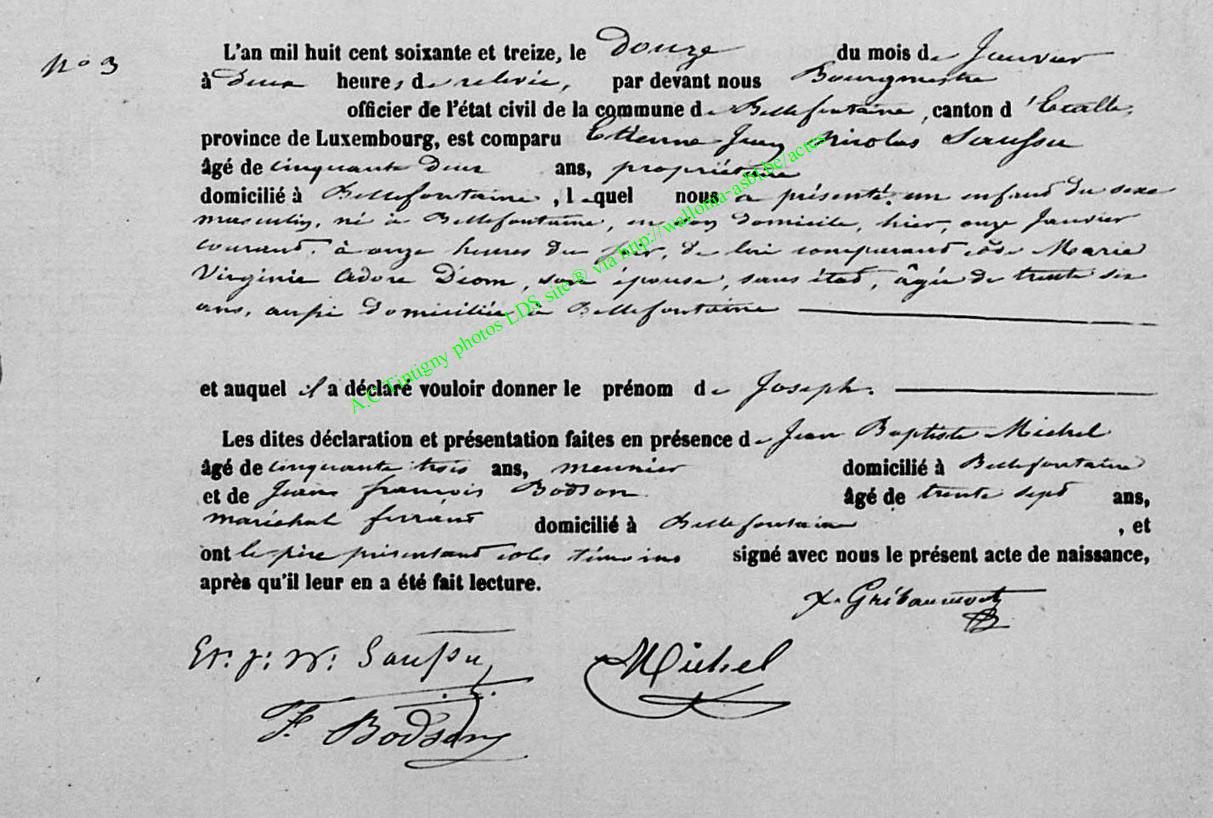 N° 3
L'an mil huit cent soixante et treize, le Douze du mois de Janvier
à Deux heures de relevée, par devant nous Bourgmestre
officier de l'état civil de la commune de Bellefontaine, canton d'Etalle,
province de Luxembourg, est comparu Etienne Jean Nicolas Saussu
âgé de cinquante deux ans, propriétaire
domicilié à Bellefontaine, lequel nous a présenté un enfant du sexe
masculin, né à Bellefontaine, en son domicile, hier, onze Janvier
courant, à onze heures du soir, de lui comparant et de Marie
Virginie Adore Déom, son épouse, sans état, âgée de trente six
ans, aussi domiciliée à Bellefontaine
et auquel il a déclaré vouloir donner le prénom de Joseph.
Les dites déclaration et présentation faites en présence de Jean Baptiste Michel
âgé de cinquante trois ans, meunier domicilié à Bellefontaine
et de Jean françois Bodson âgé de trente sept ans,
maréchal ferrant domicilié à Bellefontaine, et
ont le père présentant et les témoins signé avec nous le présent acte de naissance,
après qu'il leur en a été fait lecture.
X. Gribaumont
Et. j. N. Saussu
Michel
F. Bodson
A.C. Tintigny photos LDS site ® via http://wallonia-asbl.be/actes